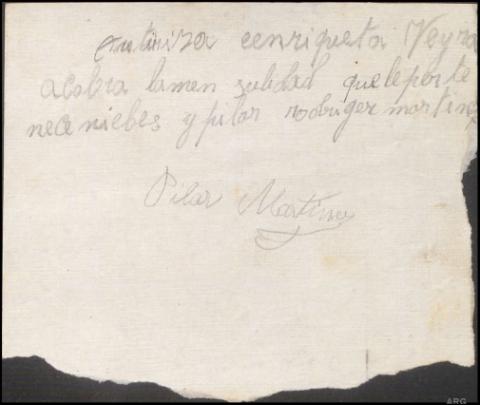 Autoriza eenriqueta Neyra
acobra lamen sulidad queleperte
nece niebes y pilar rodriger martinez
Pilar Martinez
ARG